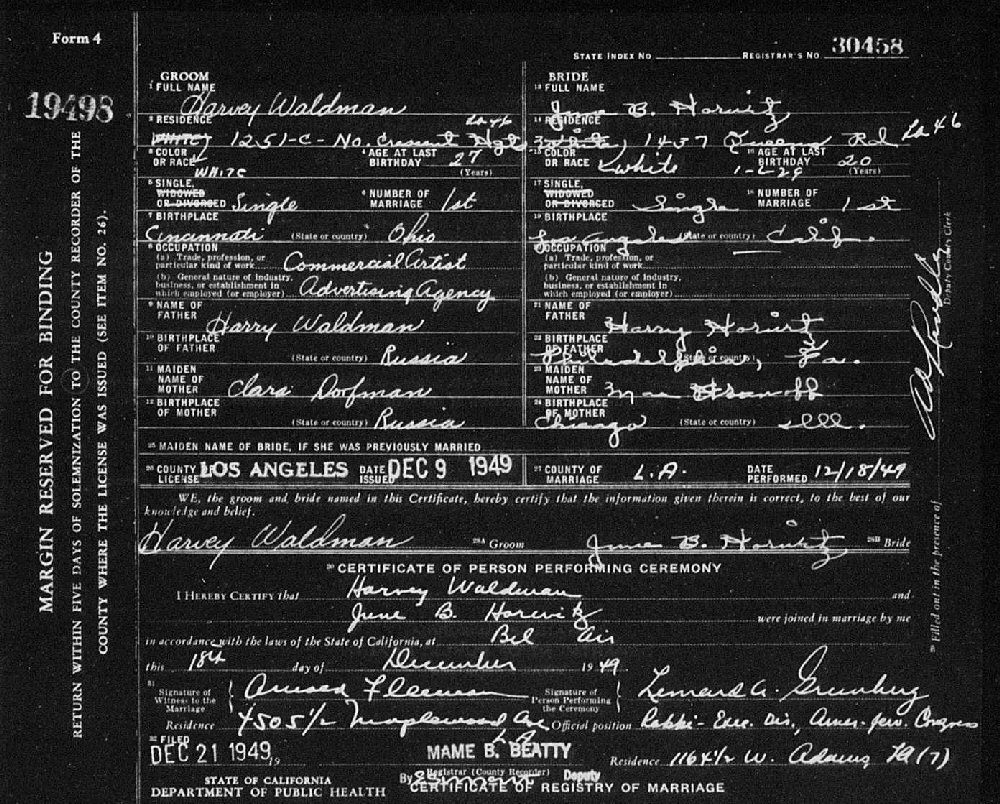 Form 4
STATE INDEX No REGISTRAR'S No 30458
19498
MARGIN RESERVED FOR BINDING
RETURN WITHIN FIVE DAYS OF SOLEMNIZATION TO THE COUNTY RECORDER OF THE
COUNTY WHERE THE LICENSE WAS ISSUED (SEE ITEM NO. 26).
GROOM
1 FULL NAME Harvey Waldman
2 RESIDENCE 1251-C - No. Crescent Hgts LA 46
3 COLOR OR RACE White
4 AGE AT LAST BIRTHDAY 27 (Years)
5 SINGLE, WIDOWED OR DIVORCED Single
6 NUMBER OF MARRIAGE 1st
7 BIRTHPLACE Cincinnati (State or country) Ohio
8 OCCUPATION
(a) Trade, profession, or particular kind of work Commercial Artist
(b) General nature of industry, business, or establishment in which employed (or employer) Advertising Agency
9 NAME OF FATHER Harry Waldman
10 BIRTHPLACE OF FATHER (State or country) Russia
11 MAIDEN NAME OF MOTHER Clara Dorfman
12 BIRTHPLACE OF MOTHER (State or country) Russia
BRIDE
13 FULL NAME June B. Horwitz
14 RESIDENCE 1437 Rd LA 46
15 COLOR OR RACE White
16 AGE AT LAST BIRTHDAY 20 (Years)
1-2-29
17 SINGLE, WIDOWED OR DIVORCED Single
18 NUMBER OF MARRIAGE 1st
19 BIRTHPLACE Los Angeles (State or country) Calif.
20 OCCUPATION
(a) Trade, profession, or particular kind of work
(b) General nature of industry, business, or establishment in which employed (or employer)
21 NAME OF FATHER Harry Horwitz
22 BIRTHPLACE OF FATHER Philadelphia, (State or country) Pa.
23 MAIDEN NAME OF MOTHER Mae
24 BIRTHPLACE OF MOTHER Chicago (State or country) Ill.
25 MAIDEN NAME OF BRIDE, IF SHE WAS PREVIOUSLY MARRIED
26 COUNTY LICENSE LOS ANGELES DATE ISSUED DEC 9 1949
27 COUNTY OF MARRIAGE L.A. DATE PERFORMED 12/18/49
WE, the groom and bride named in this Certificate, hereby certify that the information given therein is correct, to the best of our
knowledge and belief.
Harvey Waldman 28A Groom June B. Horwitz 28B Bride
29 CERTIFICATE OF PERSON PERFORMING CEREMONY
I HEREBY CERTIFY that Harvey Waldman and
June B. Horwitz were joined in marriage by me
in accordance with the laws of the State of California, at Bel Air
this 18th day of December 1949
31 Signature of Witness to the Marriage
Signature of Person Performing the Ceremony Leonard A. Greenberg
Residence 4505 1/2 Maplewood Ave LA Official position Rabbi - Exec. Dir., Amer. Jew. Congress
32 FILED
DEC 21 1949 19 MAME B. BEATTY Residence 1164 1/2 W. Adams LA (7)
Registrar (County Recorder)
By Deputy
STATE OF CALIFORNIA
DEPARTMENT OF PUBLIC HEALTH CERTIFICATE OF REGISTRY OF MARRIAGE
Deputy County Clerk
30 Filled out in the presence of